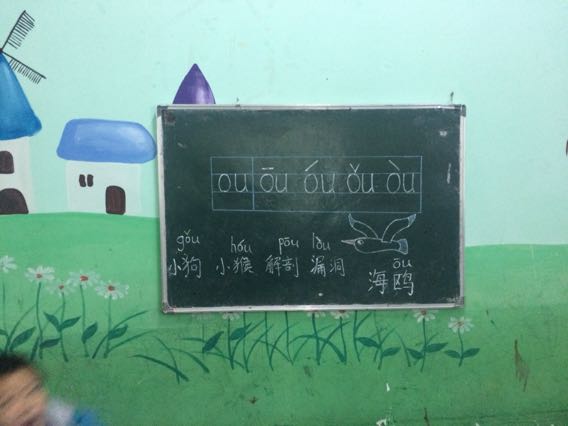 ou ōu óu ǒu òu
gǒu hóu pōu lòu
小狗 小猴 解剖 漏洞
ōu
海鸥